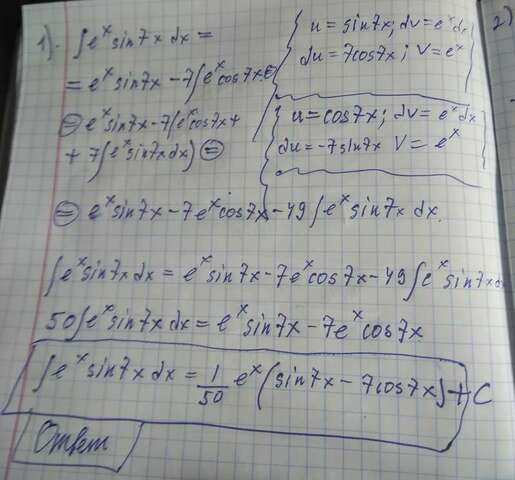 1). ∫e^x sin7x dx =
= e^x sin7x - 7∫e^x cos7x =
{ u = sin7x; dv = e^x dx
du = 7cos7x; V = e^x }
= e^x sin7x - 7(e^x cos7x +
+ 7∫e^x sin7x dx) =
{ u = cos7x; dv = e^x dx
du = -7sin7x V = e^x }
= e^x sin7x - 7e^x cos7x - 49∫e^x sin7x dx.
∫e^x sin7x dx = e^x sin7x - 7e^x cos7x - 49∫e^x sin7x dx
50∫e^x sin7x dx = e^x sin7x - 7e^x cos7x
∫e^x sin7x dx = 1/50 e^x (sin7x - 7cos7x) + C
Ответ
2)